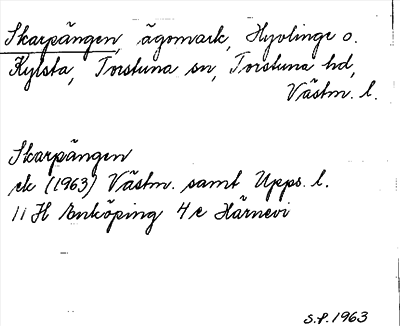 Skarpängen, ägomark, Hyvlinge o.
Kylsta, Torstuna sn, Torstuna hd,
Västm. l.
Skarpängen
ek (1963) Västm. samt Upps. l.
11 H Enköping 4 c Härnevi
S.P. 1963